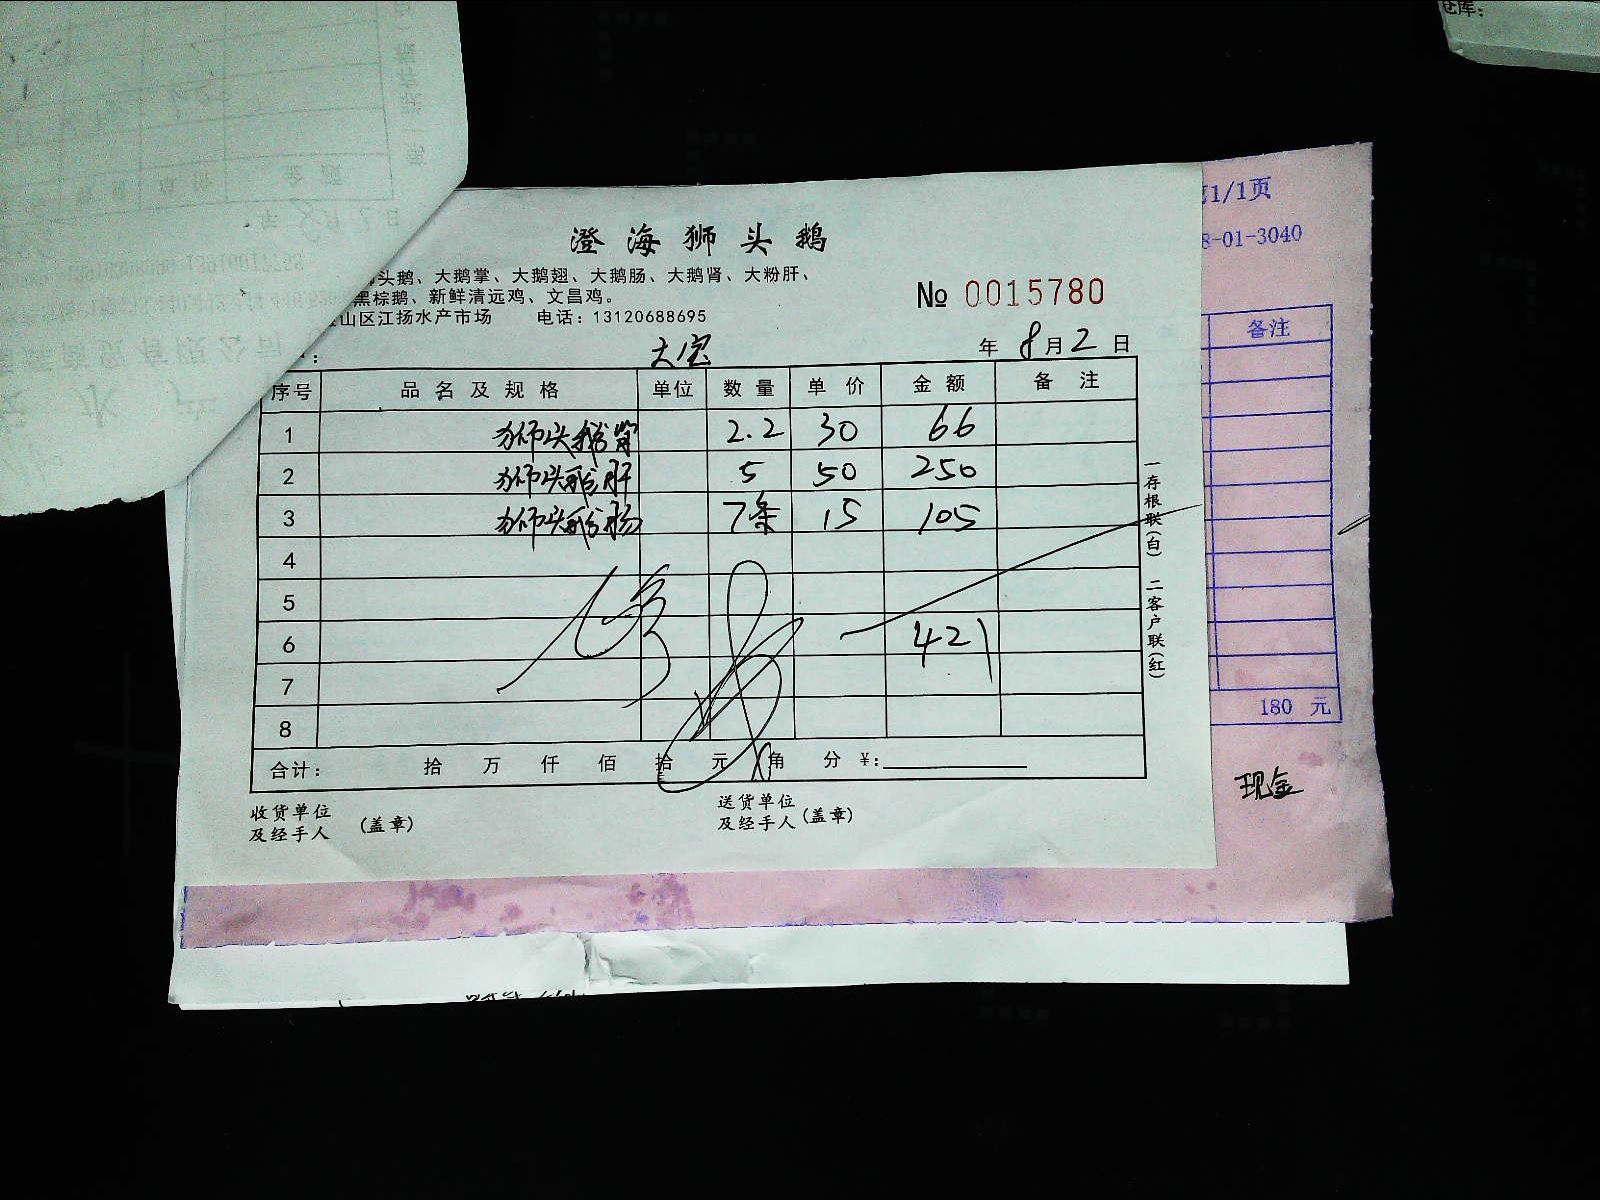 仓库:
1/1页
8-01-3040
备注
180 元
现金
澄海狮头鹅
头鹅、大鹅掌、大鹅翅、大鹅肠、大鹅肾、大粉肝、
黑棕鹅、新鲜清远鸡、文昌鸡。
山区江扬水产市场 电话:13120688695
№ 0015780
大宝
年 8月2日
序号 品名及规格 单位 数量 单价 金额 备注
1 狮头鹅肾 2.2 30 66
2 狮头鹅肝 5 50 250
3 狮头鹅肠 7条 15 105
4
5
6 421
7
8
合计: 拾 万 仟 佰 拾 元 角 分 ¥:
一存根联(白) 二客户联(红)
收货单位
及经手人 (盖章)
送货单位
及经手人 (盖章)